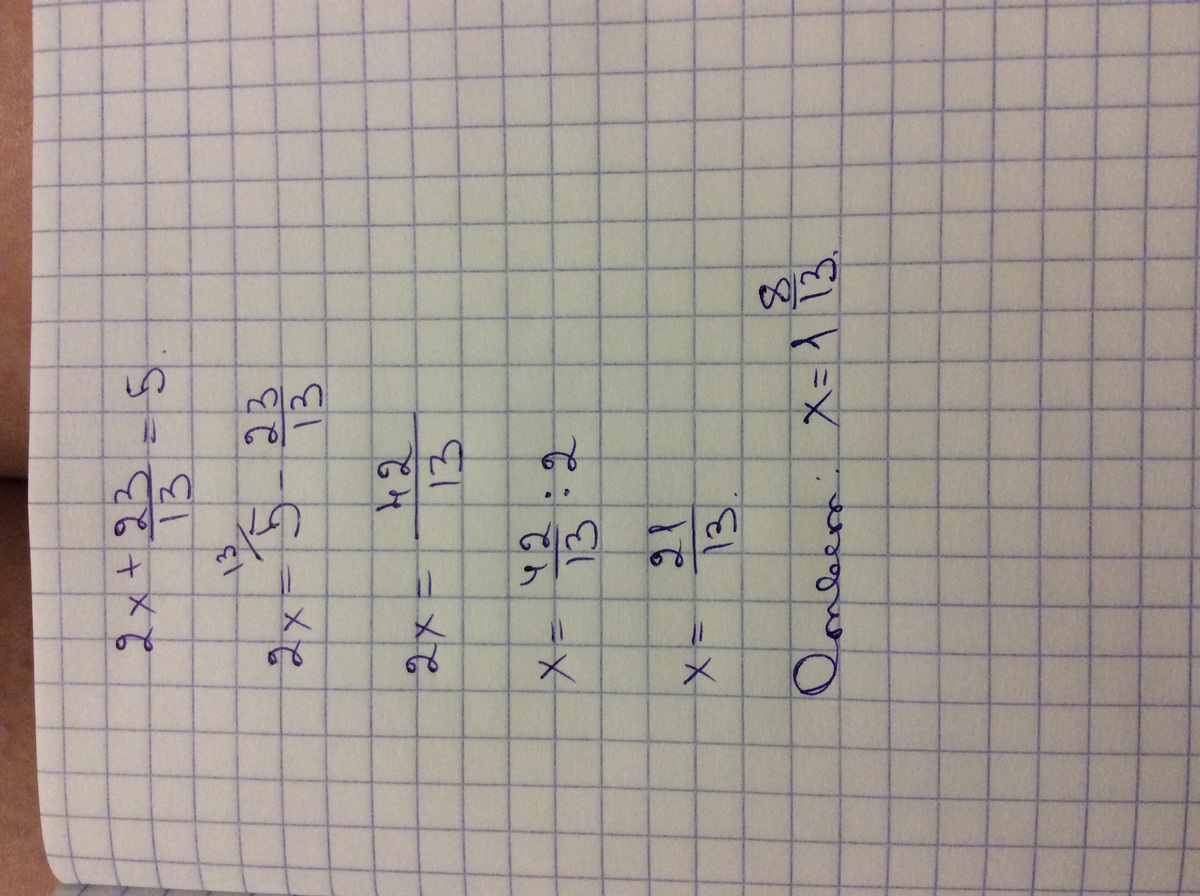 2x + 23/13 = 5.
2x = 13/5 - 23/13
2x = 42/13
x = 42/13 : 2
x = 21/13.
Ответ: x = 1 8/13.